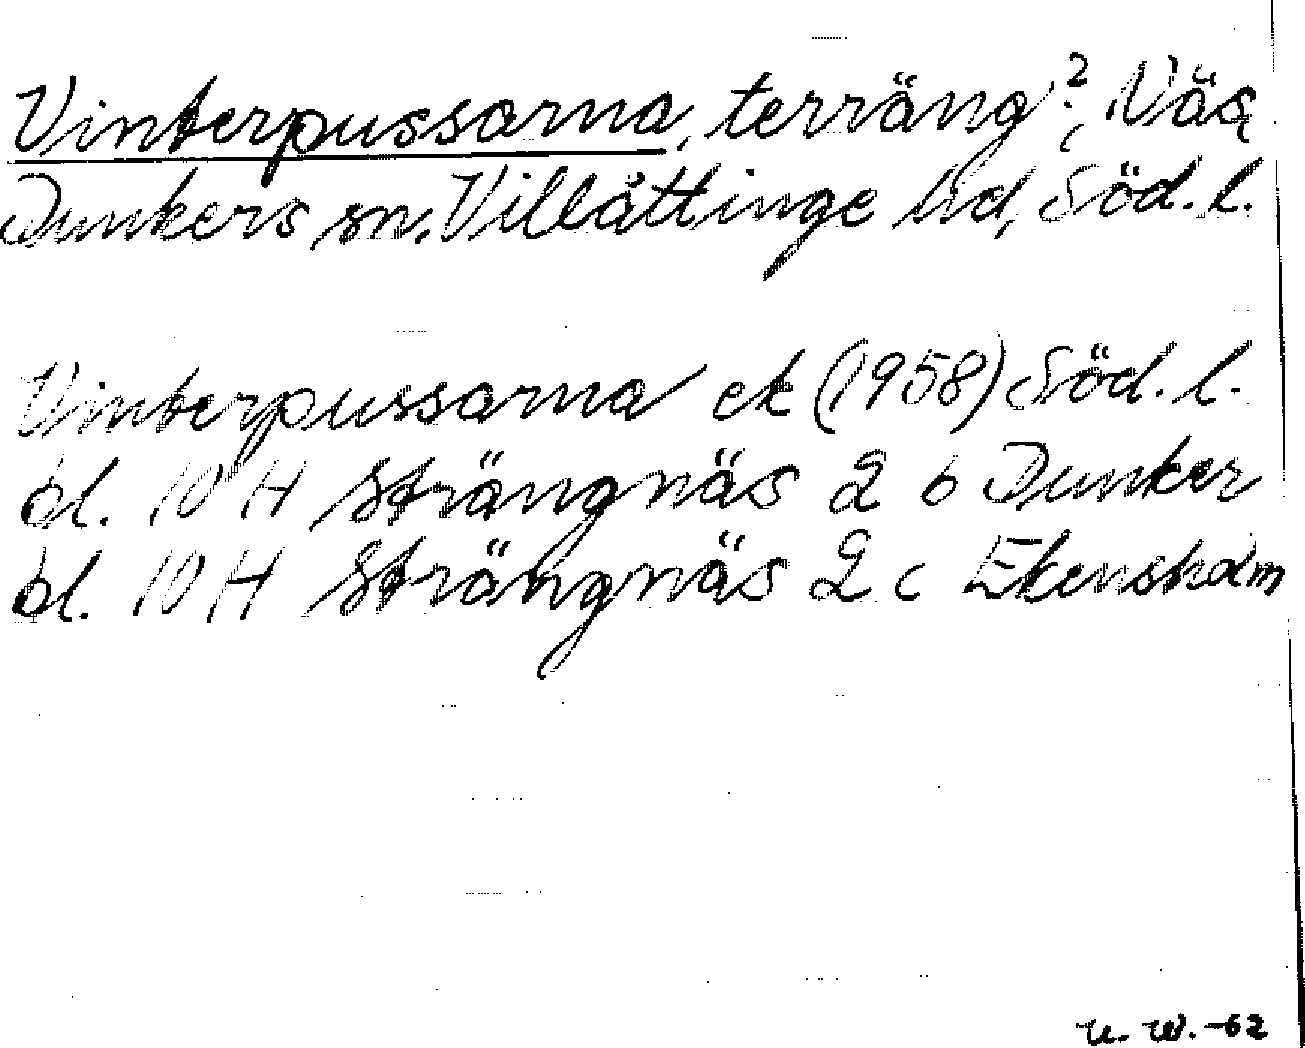 Vinterpussarna, terräng?, Väs
Dunkers sn, Villåttinge hd, Söd. l.
Vinterpussarna ek (1958) Söd. l.
bl. 10 H Strängnäs 2 b Dunker
bl. 10 H Strängnäs 2 c Ekensholm
U. W. -62